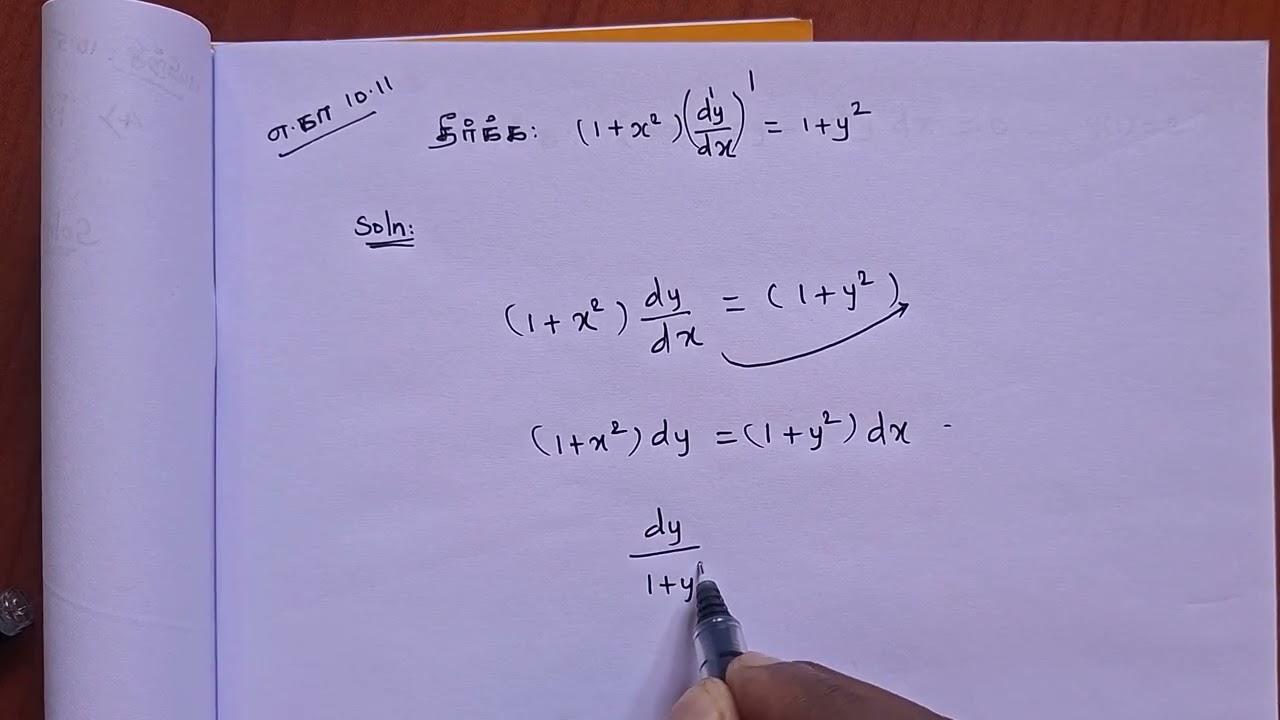 எ.கா 10.11
தீர்க்க: (1+x²)(dy/dx)¹ = 1+y²
Soln:
(1+x²) dy/dx = (1+y²)
(1+x²) dy = (1+y²) dx
dy
1+y